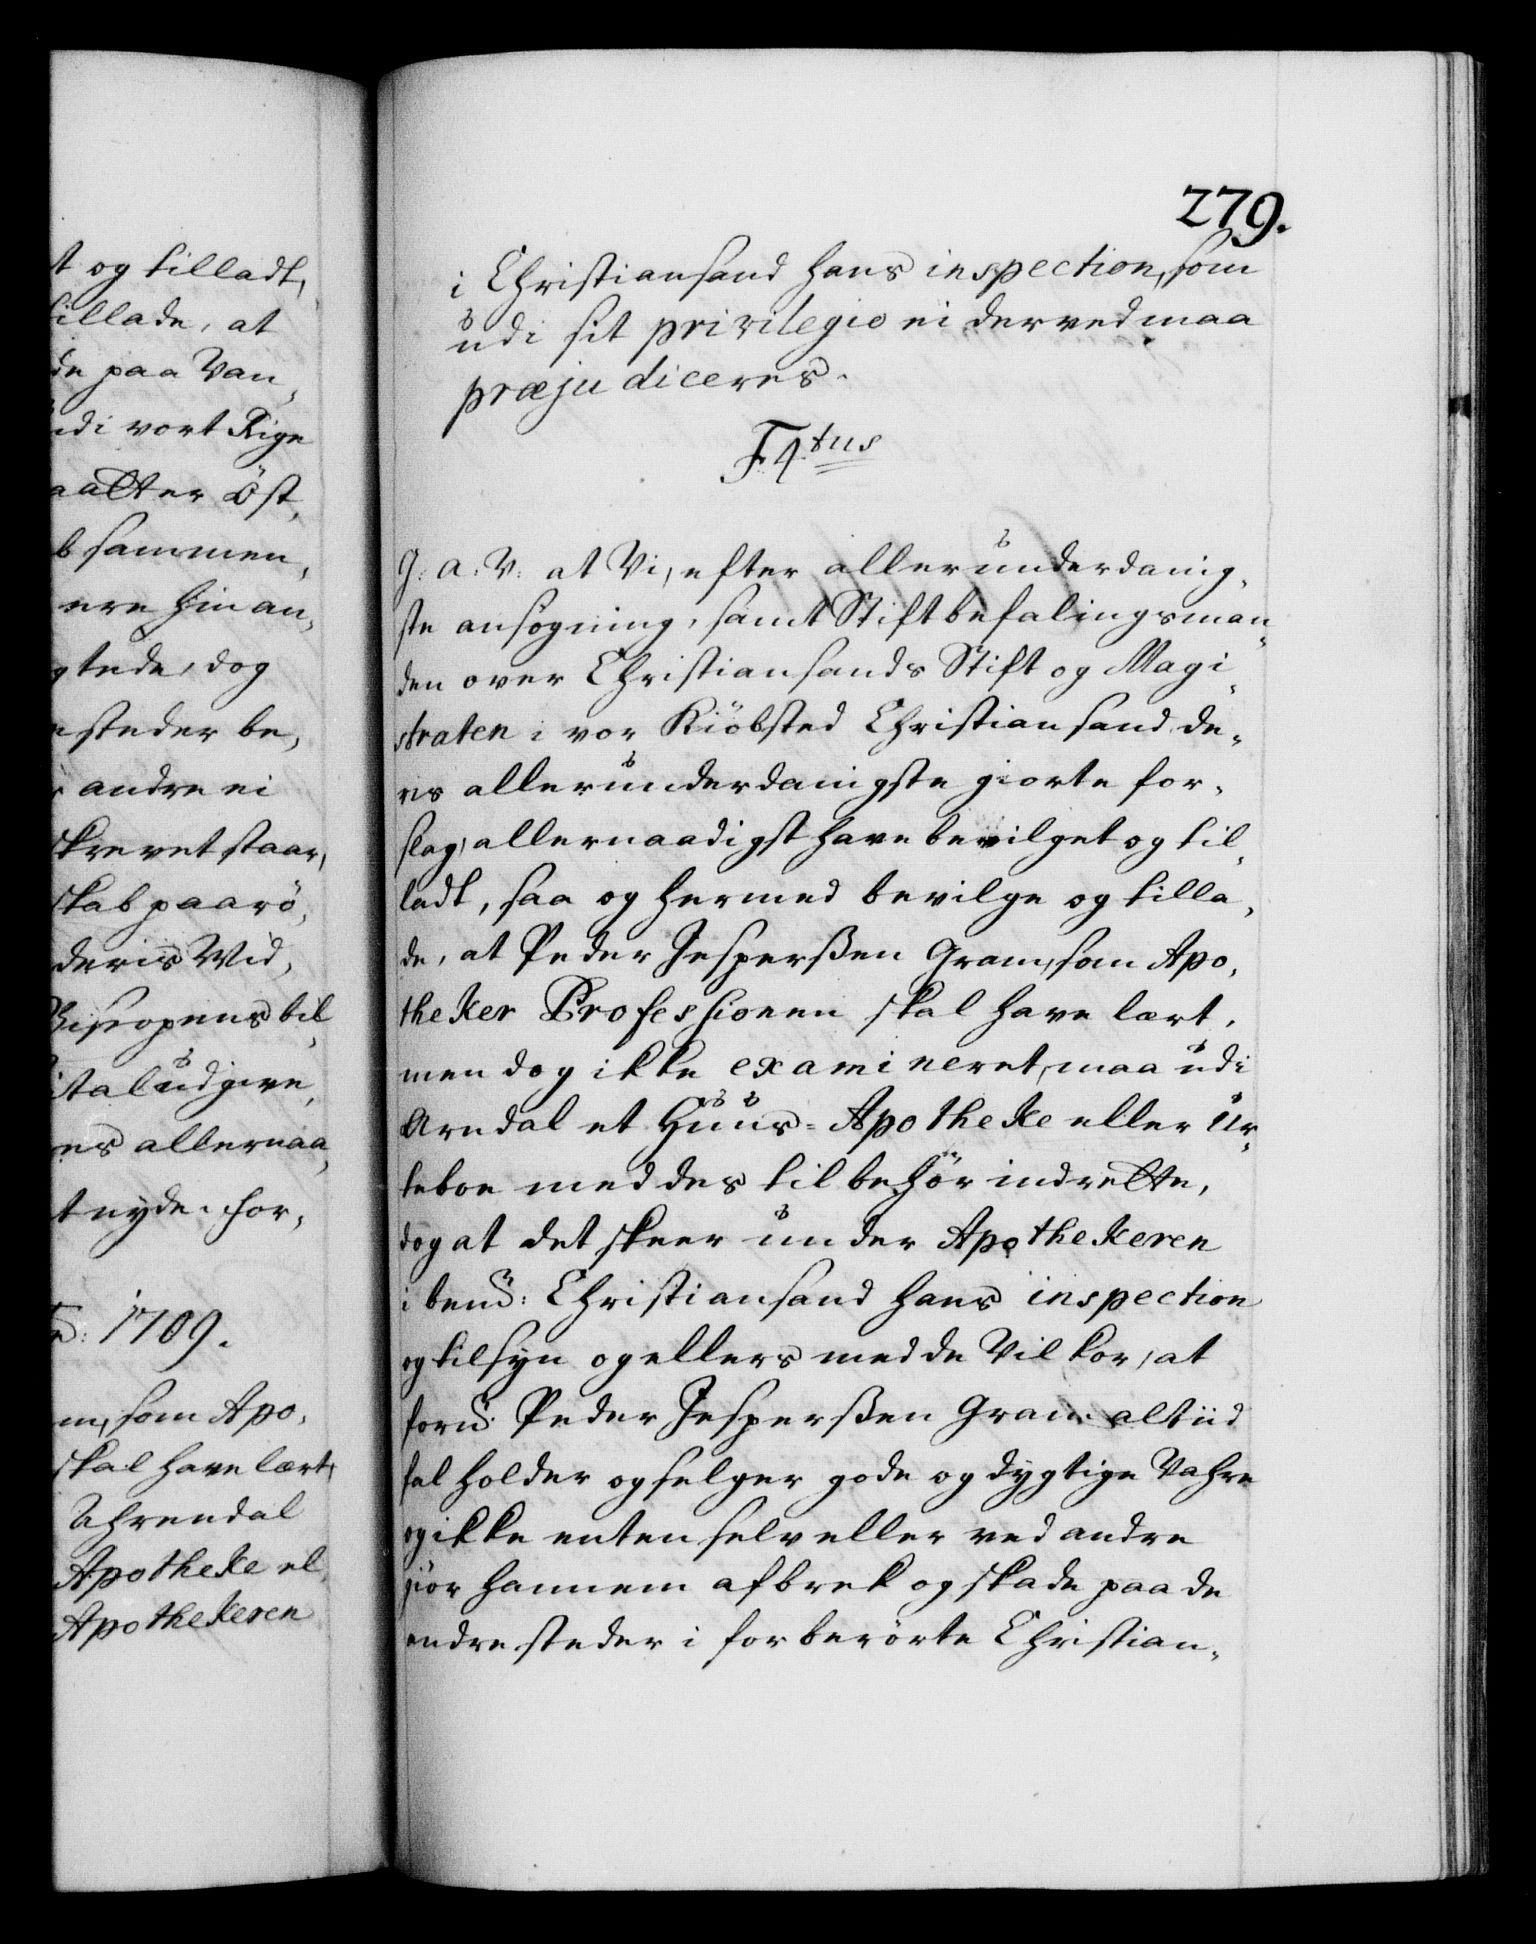 t og tilladt,
tillade, at
de paa Van,
udi vort Rige
aatter Öst,
b sammen,
ere hinan,
gtede, dog
e steder be,
r andre ei
skrevet staar,
skab paarö,
deris Wid,
Bispopens til
ital udgive,
res allernaa,
t nyde. for,
1709.
m, som Apo,
skal have lært,
Ahrendal
Apotheke el,
Apothekeren
279.
i Christiansand hans inspection, som
udi sit privilegio ei derved maa
præjudiceres.
F. 4.tus
G: a: V: at Vi, efter allerunderdanig,
ste ansøgning, samt Stiftbefalingsman,
den over Christiansands Stift og Magi,
straten i vor Kiöbsted Christiansand de,
ris allerunderdanigste giorte for,
slag, allernaadigst have bevilget og til,
ladt, saa og hermed bevilge og tilla,
de, at Peder Jesperßen Gram, som Apo,
theker Professionen skal have lært,
men dog ikke examineret, maa udi
Arndal et Huus-Apotheke eller Ur,
teboe med des tilbehör indrette,
dog at det skeer under Apothekeren
i bemd: Christiansand hans inspection
og tilsyn og ellers med de Vilkor, at
fornd: Peder Jesperßen Gram altiid
fal holder og selger gode og dygtige Vahre
og ikke enten selv eller ved andre
giör hannem afbrek og skade paa de
andre steder i forberörte Christian,